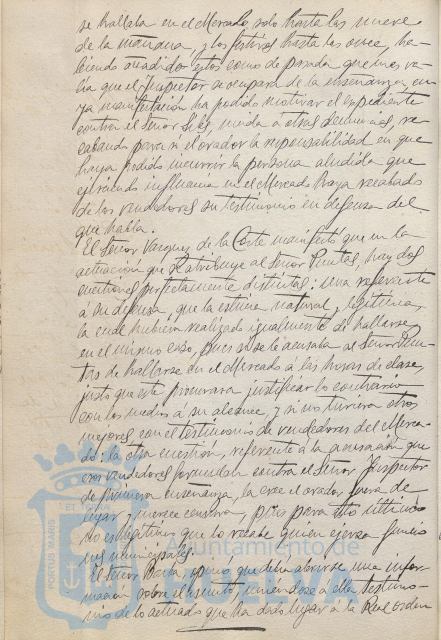 se hallaba en el Mercado solo hasta las nueve
de la mañana, y los festivos hasta las once, ha-
biendo añadido estos como de pasada que mas va-
lía que el Inspector se ocupara de la enseñanza, cu-
ya manifestación ha podido motivar el expediente
contra el Señor unida a otras denuncias, re-
cabando para si el orador la responsabilidad en que
haya podido incurrir la persona aludida que
ejerciendo influencia en el Mercado haya recabado
de los vendedores su testimonio en defensa del
que habla.
El Señor Vazquez de la Corte manifestó que en la
actuación que se atribuye al Señor hay dos
cuestiones perfectamente distintas: una referente
á su defensa, que la estima natural y legítima,
la cual hubiera realizado igualmente de hallarse
en el mismo caso, pues si se le acusaba al Señor
de hallarse en el Mercado á las horas de clase,
justo que este procurara justificar lo contrario
con los medios a su alcance, y si no tuviera otros
mejores con el testimonio de vendedores del Merca-
do: la otra cuestion, referente á la acusación que
esos vendedores formulan contra el Señor Inspector
de primera enseñanza, la cree el orador fuera de
lugar y merece censura, pues para esto último
no es legítimo que lo recabe quien ejerza funcio
nes municipales.
El Señor opinó que debia abrirse una infor-
macion sobre el asunto, uniendose a ella testimo-
nio de lo actuado que ha dado lugar á la Real orden
PORTUS MARIS
ET TERRAE
Ayuntamiento de
HUELVA